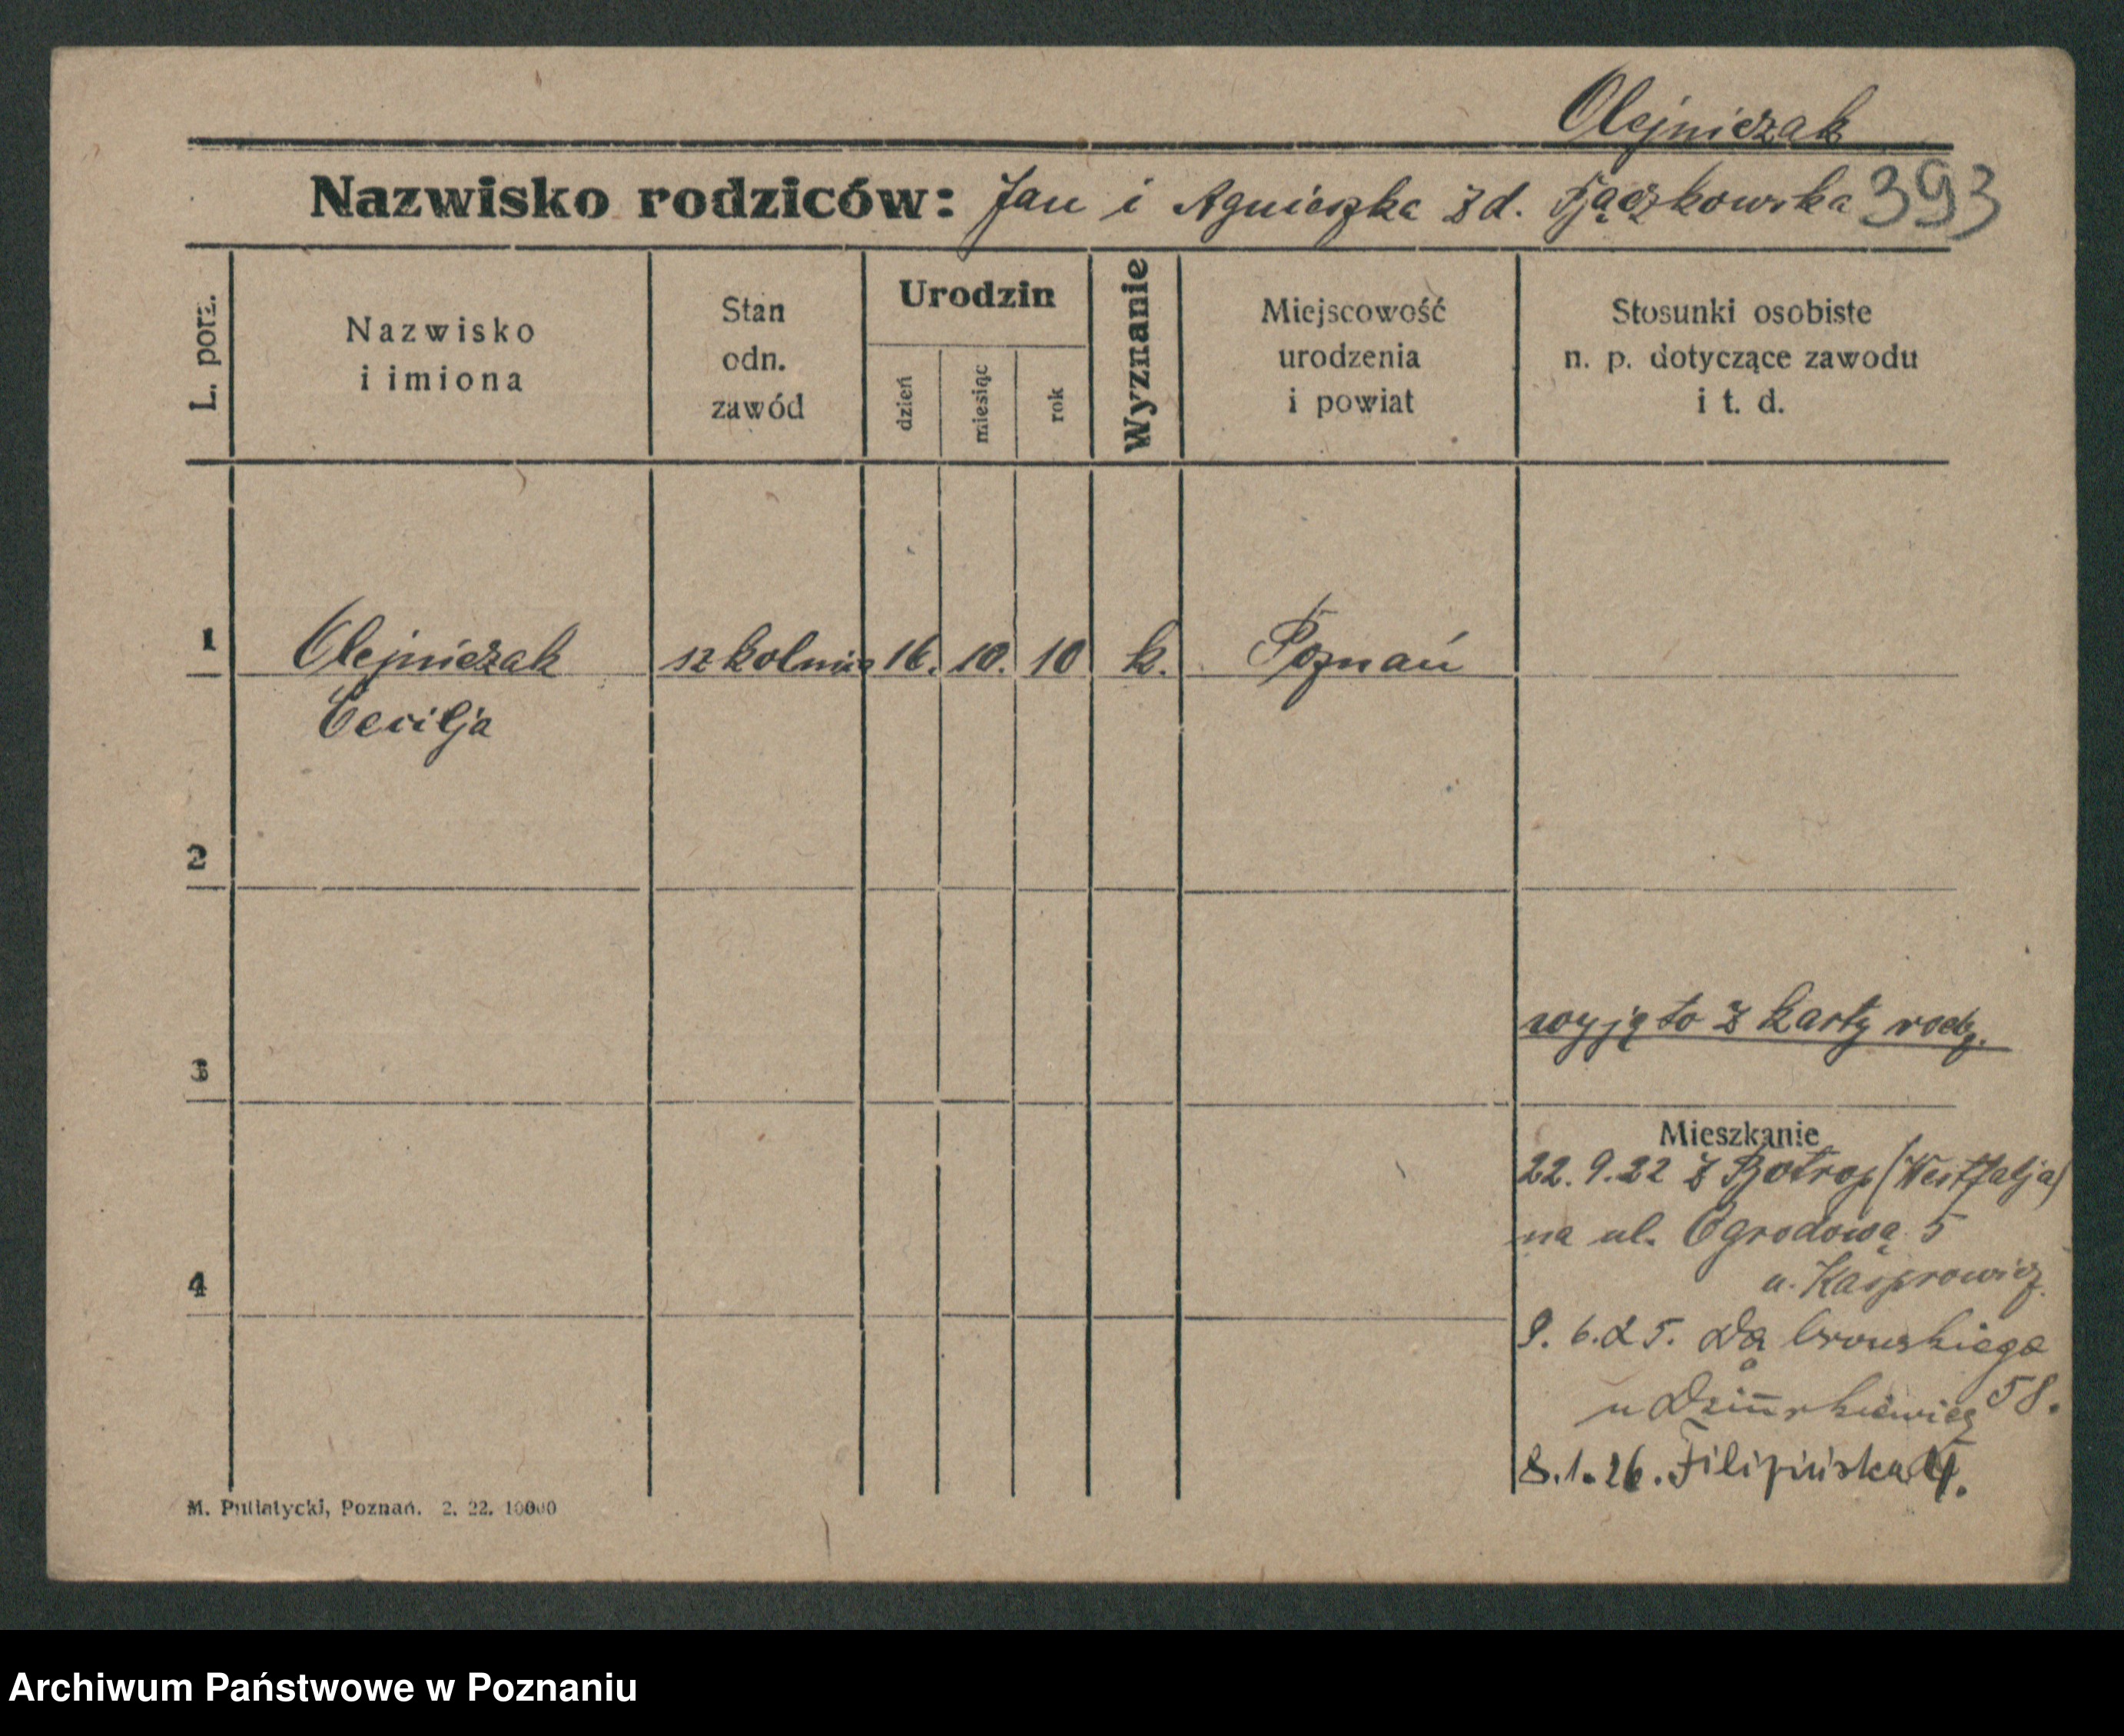 Olejniczak
Nazwisko rodziców: Jan i Agnieszka z d. Bączkowska 393
L. porz.
Nazwisko
i imiona
Stan
odn.
zawód
Urodzin
dzień
miesiąc
rok
Wyznanie
Miejscowość
urodzenia
i powiat
Stosunki osobiste
n. p. dotyczące zawodu
i t. d.
1 Olejniczak szkolna 16. 10. 10 k. Poznań
Cecilja
2
3
wyjęto z karty rodz.
4
Mieszkanie
22.9.22 z Botrop (Westfalja)
na ul. Ogrodową 5
u. Kasprowicz.
9.6.25. Dąbrowskiego
u 58.
8.1.26. Filipińska 4.
M. Putiatycki, Poznań. 2. 22. 10000
Archiwum Państwowe w Poznaniu